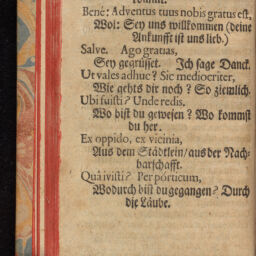 Benè: Adventus tuus nobis gratus est.
Wol: Sey uns willkommen (deine
Ankunfft ist uns lieb.)
Salve. Ago gratias,
Sey gegrüsset. Ich sage Danck.
Ut vales adhuc? Sic mediocriter,
Wie gehts dir noch? So ziemlich.
Ubi fuisti? Unde redis.
Wo bist du gewesen? Wo kommst
du her.
Ex oppido, ex vicinia,
Aus dem Städtlein/aus der Nach-
barschafft.
Quà ivisti? Per porticum,
Wodurch bist du gegangen? Durch
die Läube.